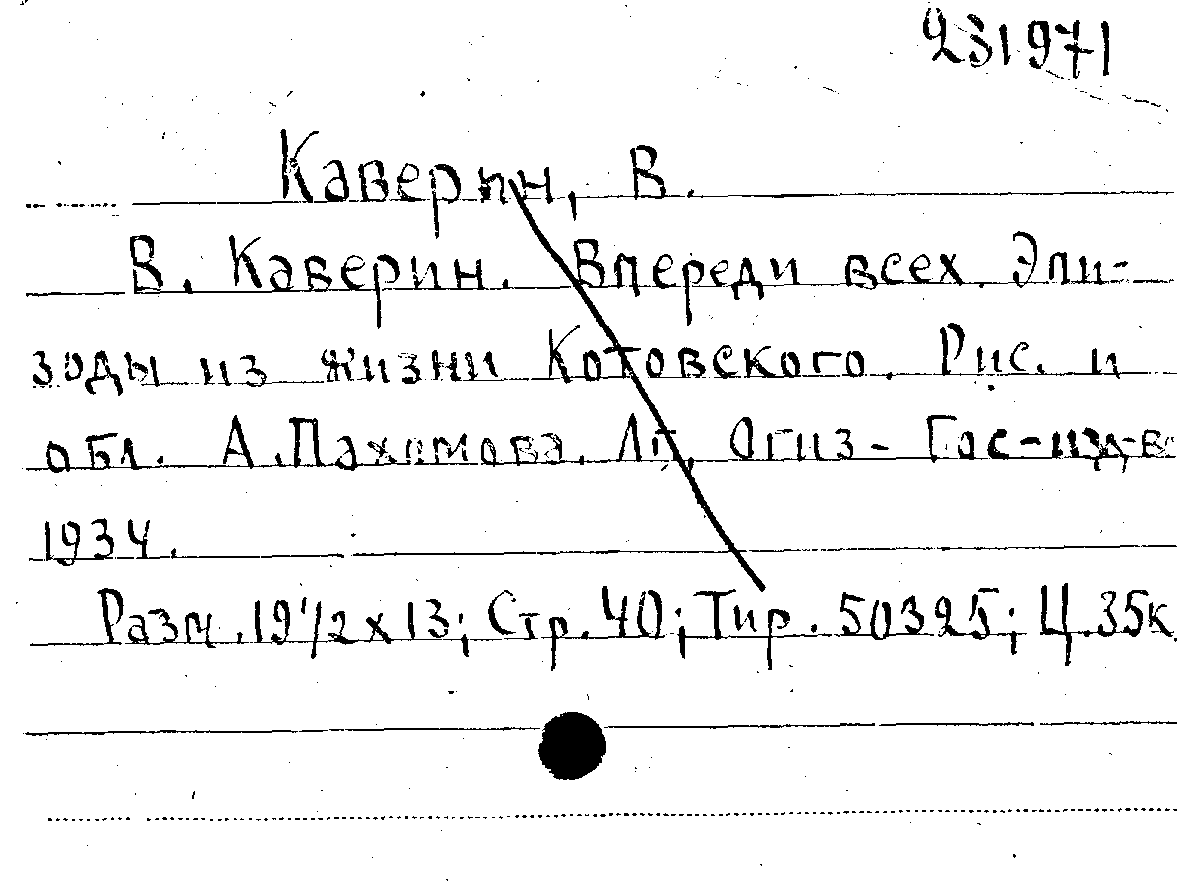 231971
Каверин, В.
В. Каверин. Впереди всех. Эпи-
зоды из жизни Котовского. Рис. и
обл. А. Пахомова. Лг, Огиз - Гос-изд-в
1934.
Разм. 19 1/2 х 13; Стр. 40; Тир. 50325; Ц. 35к